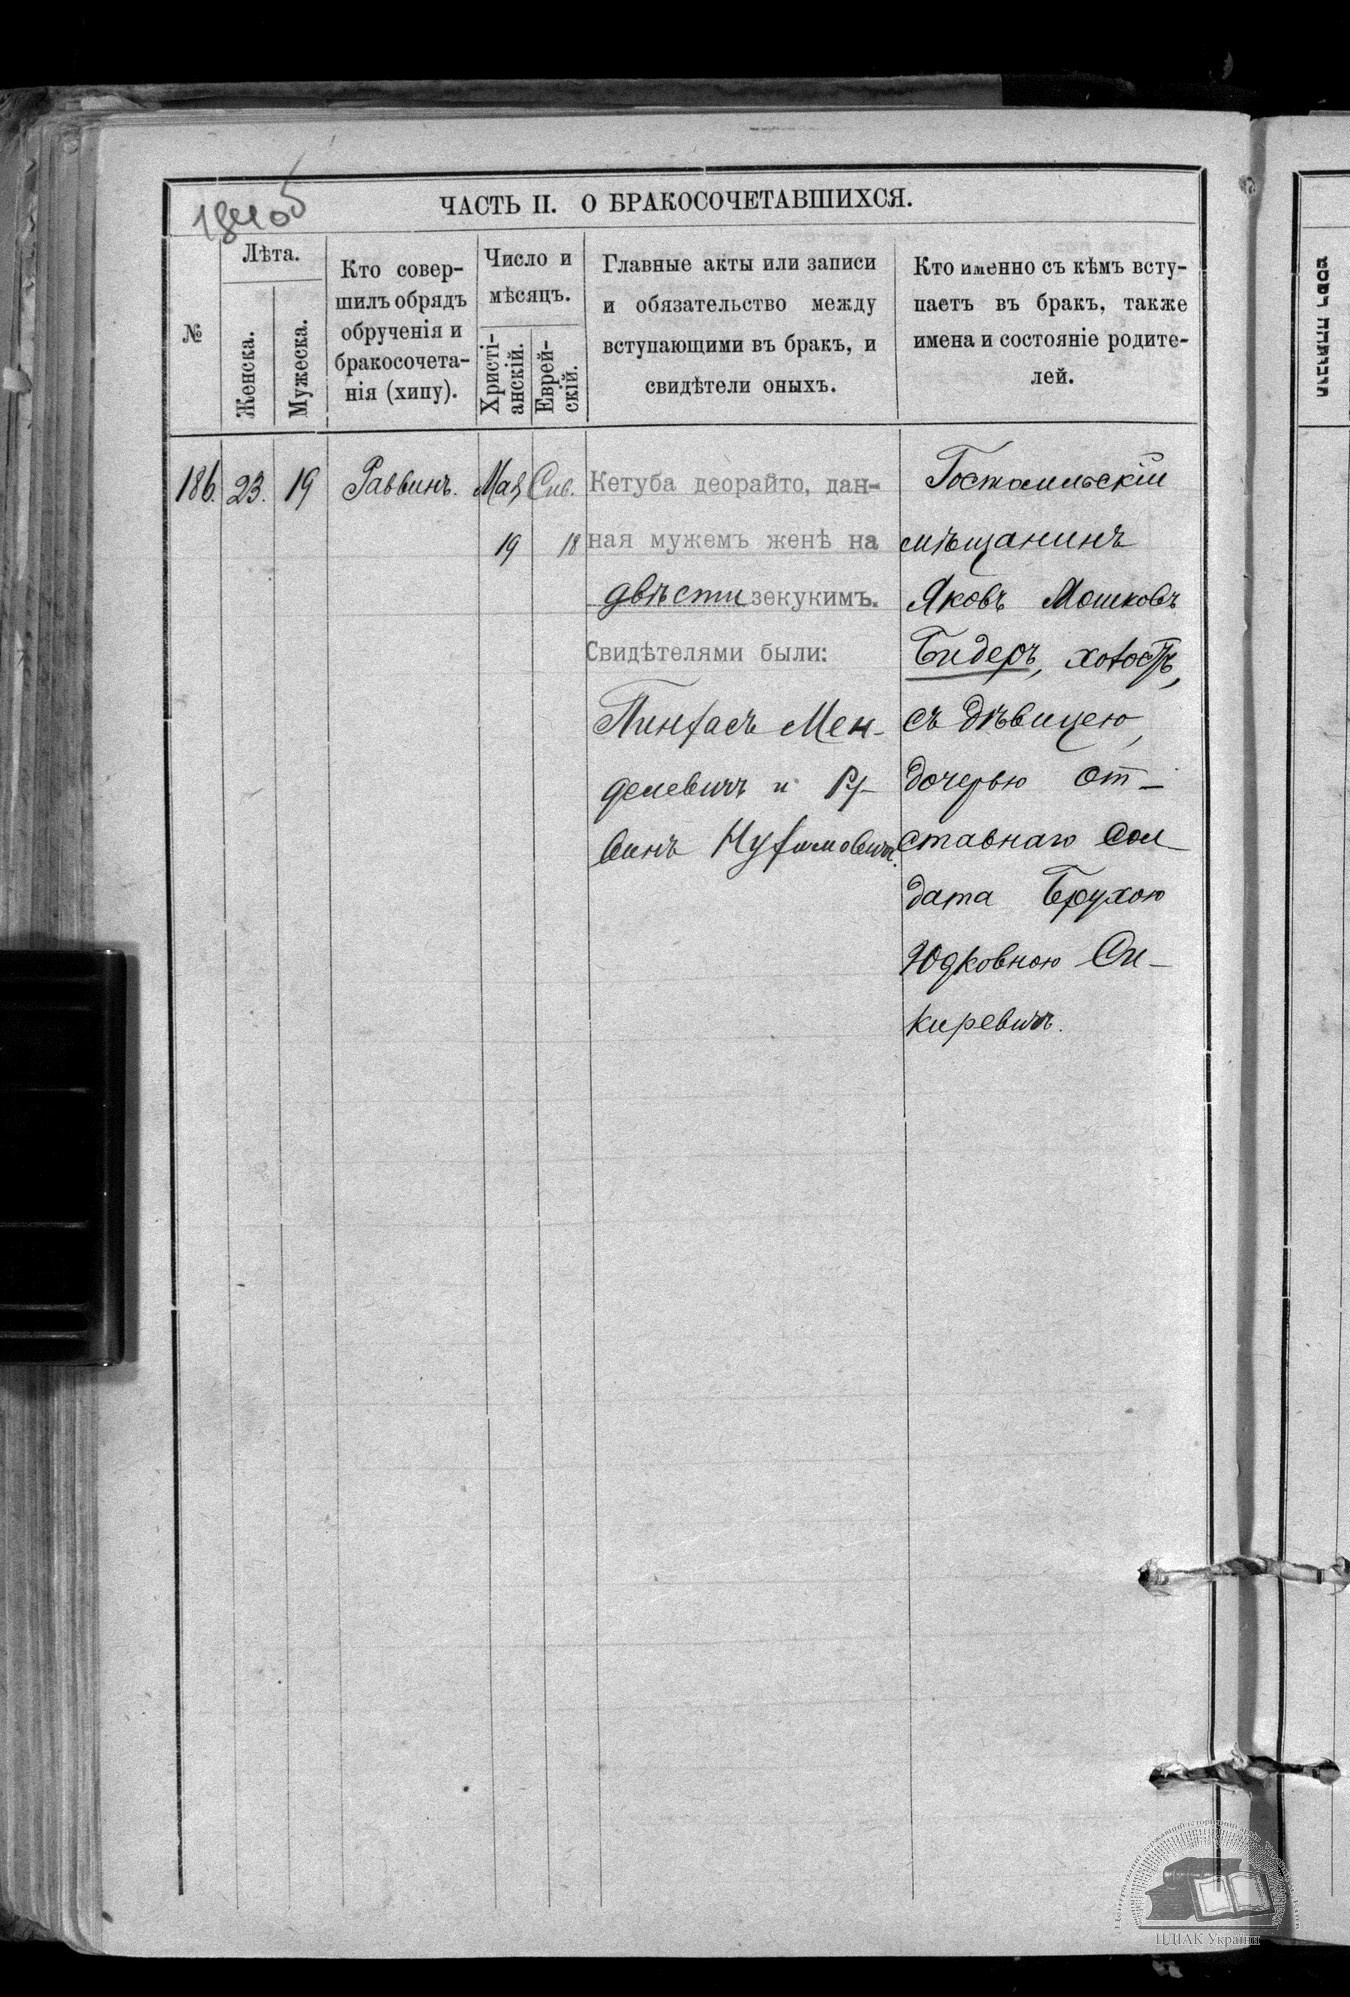 ЧАСТЬ II. О БРАКОСОЧЕТАВШИХСЯ.
№
Лѣта.
Женска.
Мужеска.
Кто совер-
шилъ обрядъ
обрученія и
бракосочета-
нія (хипу).
Число и
мѣсяцъ.
Христі-
анскій.
Еврей-
скій.
Главные акты или записи
и обязательство между
вступающими въ бракъ, и
свидѣтели оныхъ.
Кто именно съ кѣмъ всту-
паетъ въ бракъ, также
имена и состояніе родите-
лей.
186.
23.
19
Раввинъ.
Май
19
Сив.
18
Кетуба деорайто, дан-
ная мужемъ женѣ на
двѣсти зекукимъ.
Свидѣтелями были:
Пинхасъ Мен-
делевичъ и Ру-
винъ Нухимовичъ.
Гостомльскій
мѣщанинъ
Яковъ Мошковъ
Бидеръ, холостъ,
съ дѣвицею,
дочерью от-
ставнаго сол
дата Брухою
Юдковною Си-
киревичъ.
ЦДІАК України